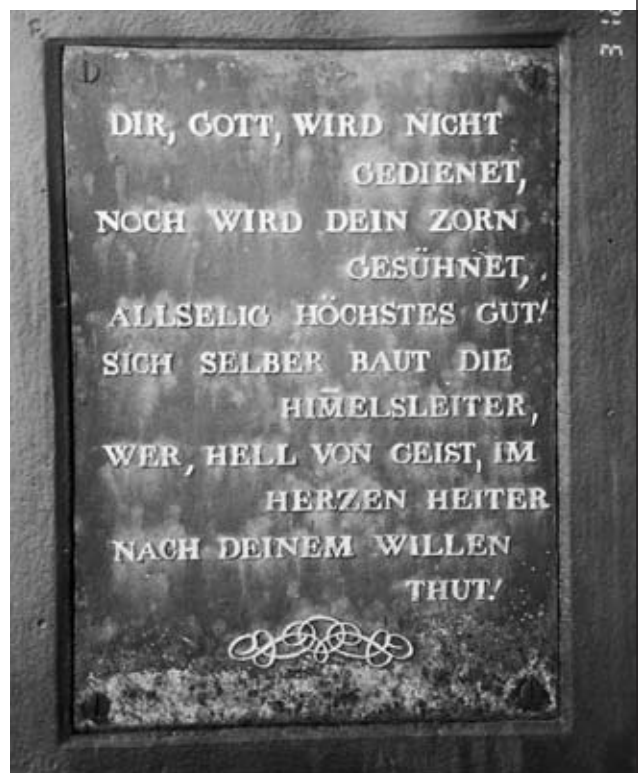 DIR, GOTT, WIRD NICHT
GEDIENET,
NOCH WIRD DEIN ZORN
GESÜHNET,
ALLSELIG HÖCHSTES GUT!
SICH SELBER BAUT DIE
HIM̄ELSLEITER,
WER, HELL VON GEIST, IM
HERZEN HEITER
NACH DEINEM WILLEN
THUT!